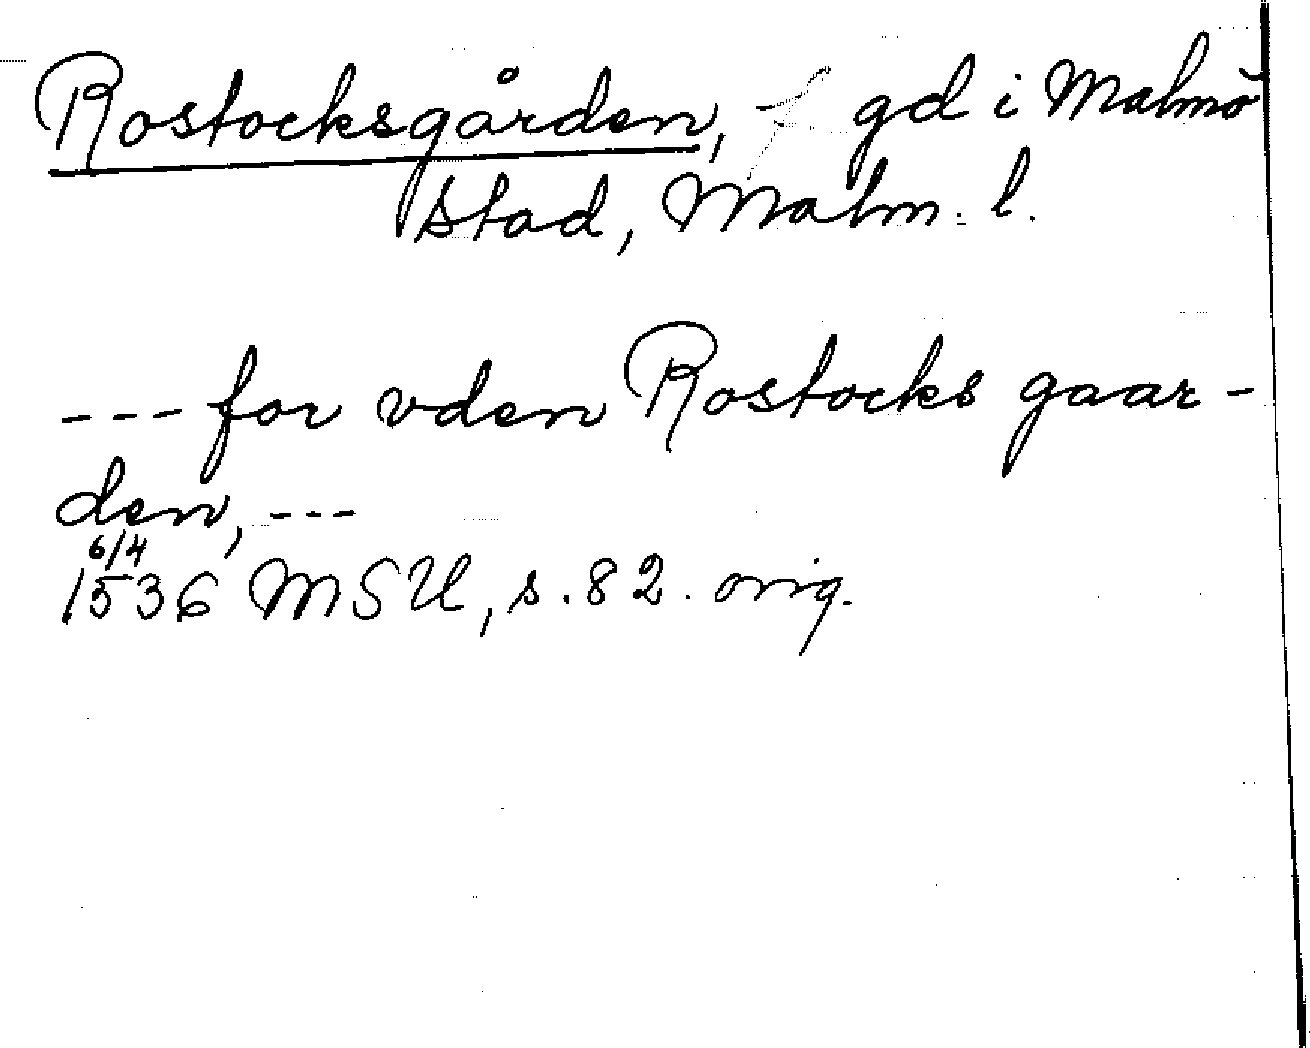 Rostocksgården, f gd i Malmö
stad, Malm. l.
--- for vden Rostocks gaar-
den, ---
6/4
1536 MSU, s. 82. orig.